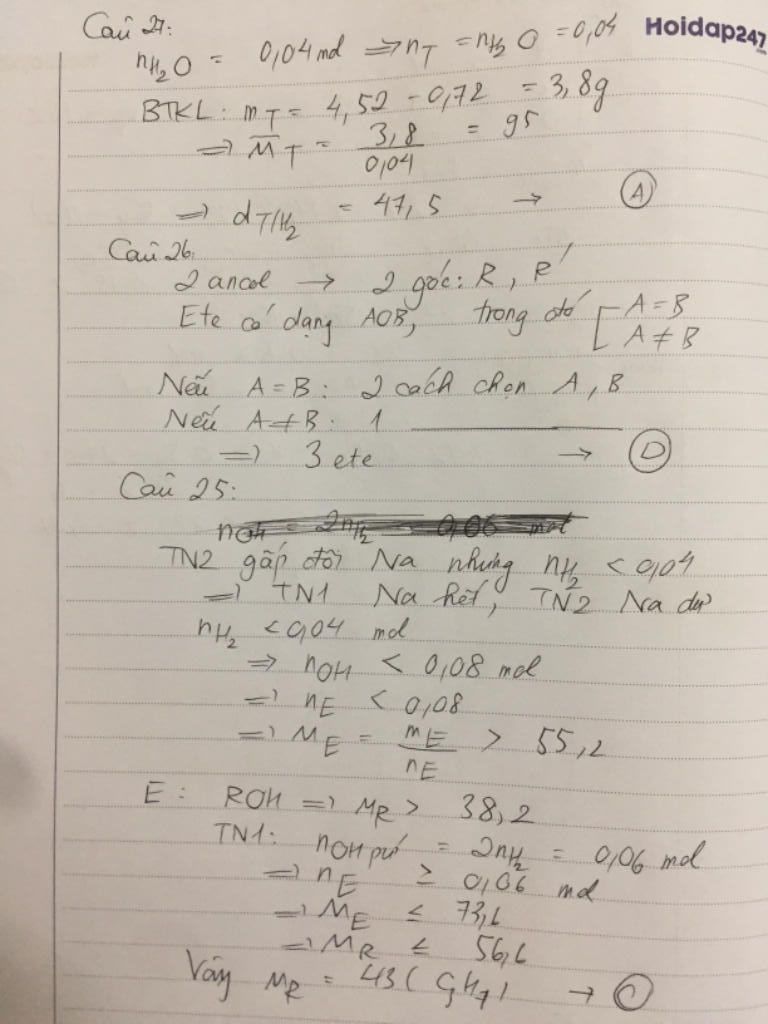 Câu 27: Hoidap247.com
nH2O = 0,04 mol => nT = nH2O = 0,04
BTKL: mT = 4,52 - 0,72 = 3,8g
=> M̄T = 3,8/0,04 = 95
=> dT/H2 = 47,5 → (A)
Câu 26:
2 ancol → 2 gốc: R, R'
Ete có dạng AOB, trong đó [ A = B
A ≠ B
Nếu A = B: 2 cách chọn A, B
Nếu A ≠ B: 1 ————
=> 3 ete → (D)
Câu 25:
nOH = 2nH2 0,06 mol
TN2 gấp đôi Na nhưng nH2 < 0,04
=> TN1 Na hết, TN2 Na dư
nH2 < 0,04 mol
=> nOH < 0,08 mol
=> nE < 0,08
=> ME = mE/nE > 55,2
E: ROH => MR > 38,2
TN1: nOH pứ = 2nH2 = 0,06 mol
=> nE ≥ 0,06 mol
=> ME ≤ 73,6
=> MR ≤ 56,6
Vậy MR = 43 (C3H7) → (C)